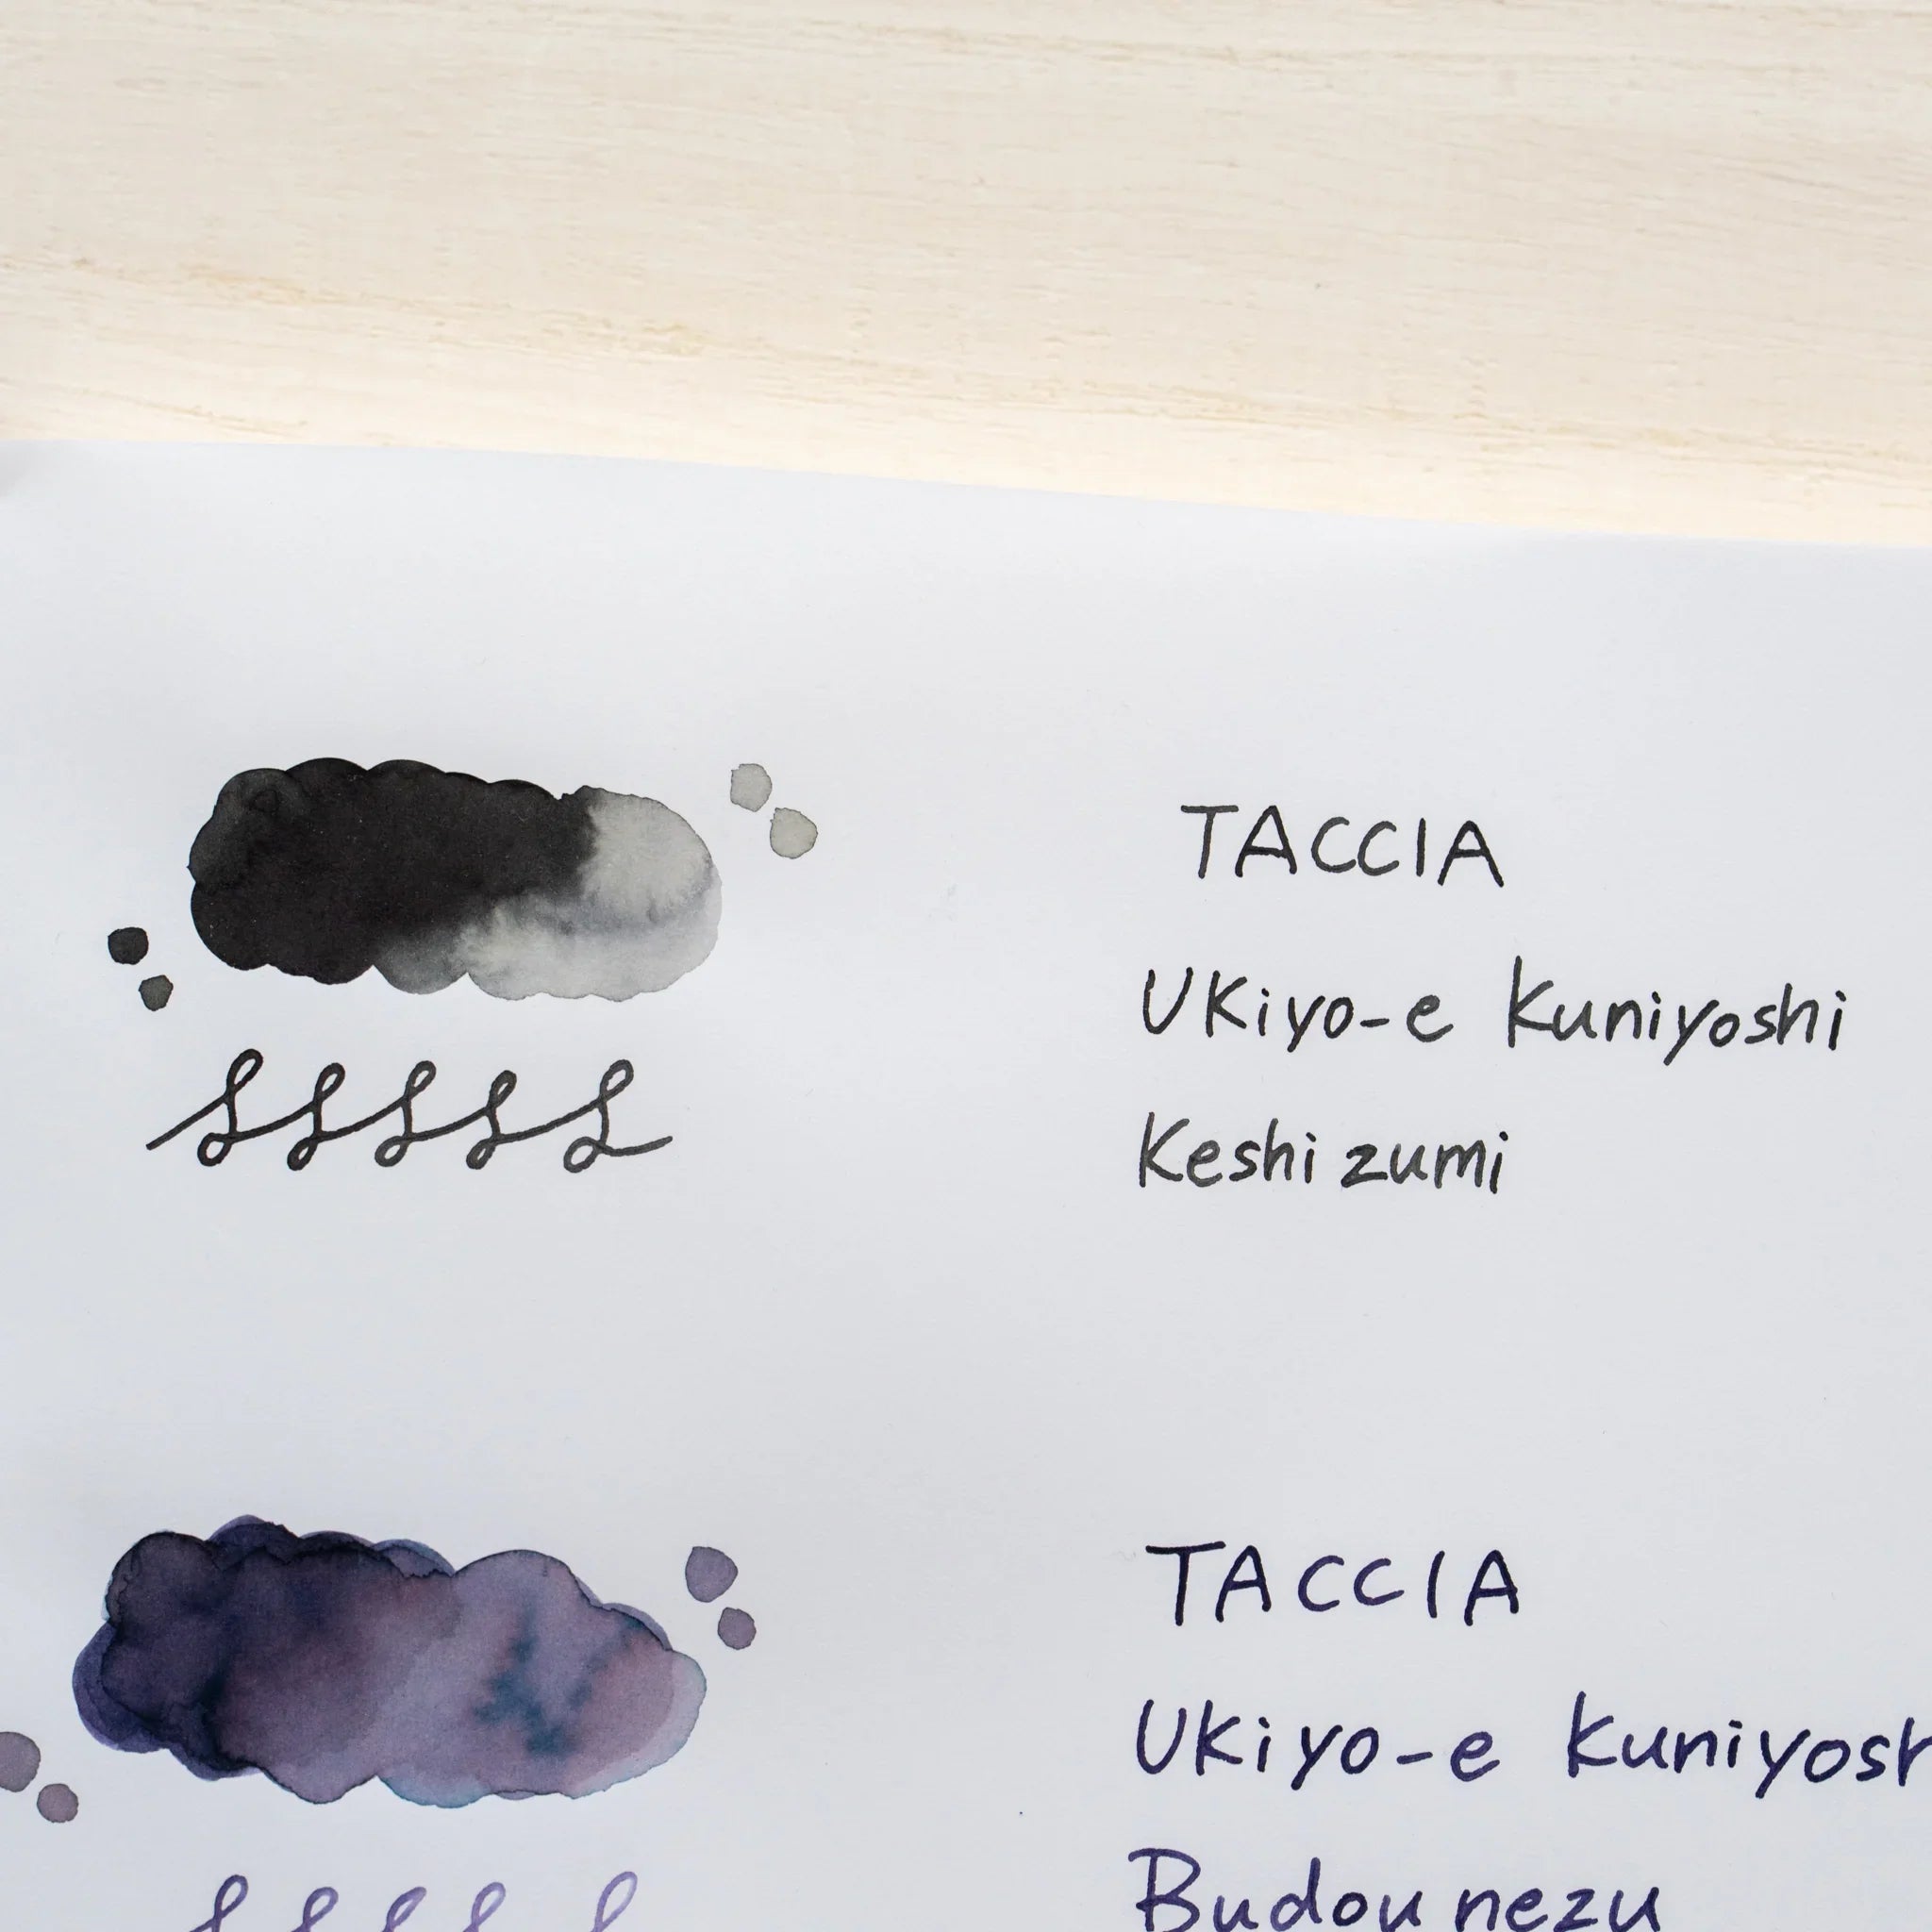 TACCIA
Ukiyo-e Kuniyoshi
Keshi zumi
TACCIA
Ukiyo-e Kuniyosh
Budou nezu